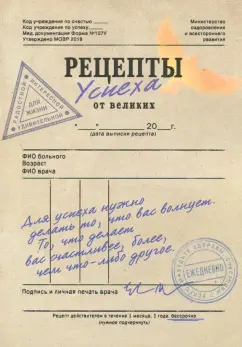 Код учреждения по счастью
Код учреждения по успеху
Мед. документации Форма №107У
Утверждено МОВР 2018
Министерство
оздоровления
и всестороннего
развития
РЕЦЕПТЫ
Успеха
от великих
РАДОСТНОЙ
ИНТЕРЕСНОЙ
УДИВИТЕЛЬНОЙ
ДЛЯ
ЖИЗНИ
"____"____________20___г.
(дата выписки рецепта)
ФИО больного
Возраст
ФИО врача
Для успеха нужно
делать то, что вас волнует.
То, что делает
вас счастливее, более,
чем что-либо другое.
ЕЖЕДНЕВНО
Подпись и личная печать врача
Рецепт действителен в течение 1 месяца, 1 года, бессрочно
(нужное подчеркнуть)